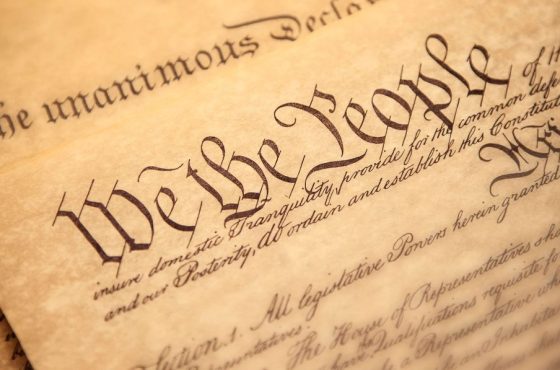 he unanimous Decla
We the People of th
insure domestic Tranquility, provide for the common defe
and our Posterity, do ordain and establish this Constitut
Section. 1. All legislative Powers herein granted
The House of Representatives sha
Qualifications requisite fo
a Representative who
an Inhabitan